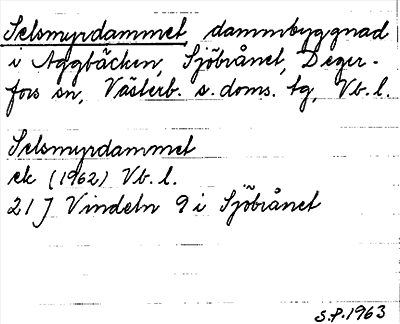 Selsmyrdammet, dammbyggnad
i Aggbäcken, Sjöbrånet, Deger-
fors sn, Västerb. s. doms. tg, Vb. l.
Selsmyrdammet
ek (1962) Vb. l.
21 J Vindeln 9 i Sjöbrånet
S.P. 1963